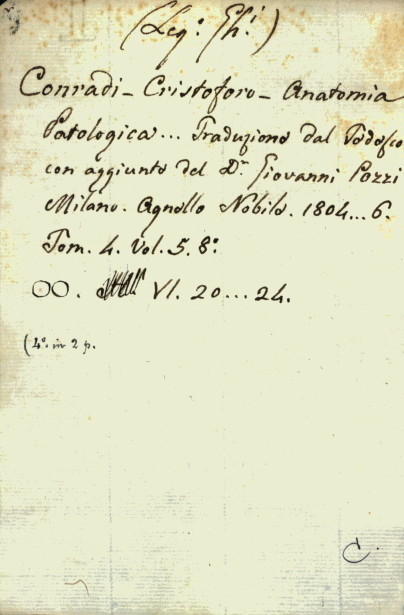 (Leg.e Gh.i)
Conradi - Cristoforo - Anatomia
Patologica... Traduzione dal Tedesco
con aggiunte del D.r Giovanni Pozzi
Milano. Agnello Nobile. 1804...6.
Tom. 4. Vol. 5. 8.o
OO. VI. 20...24.
(4.o in 2 p.
C.